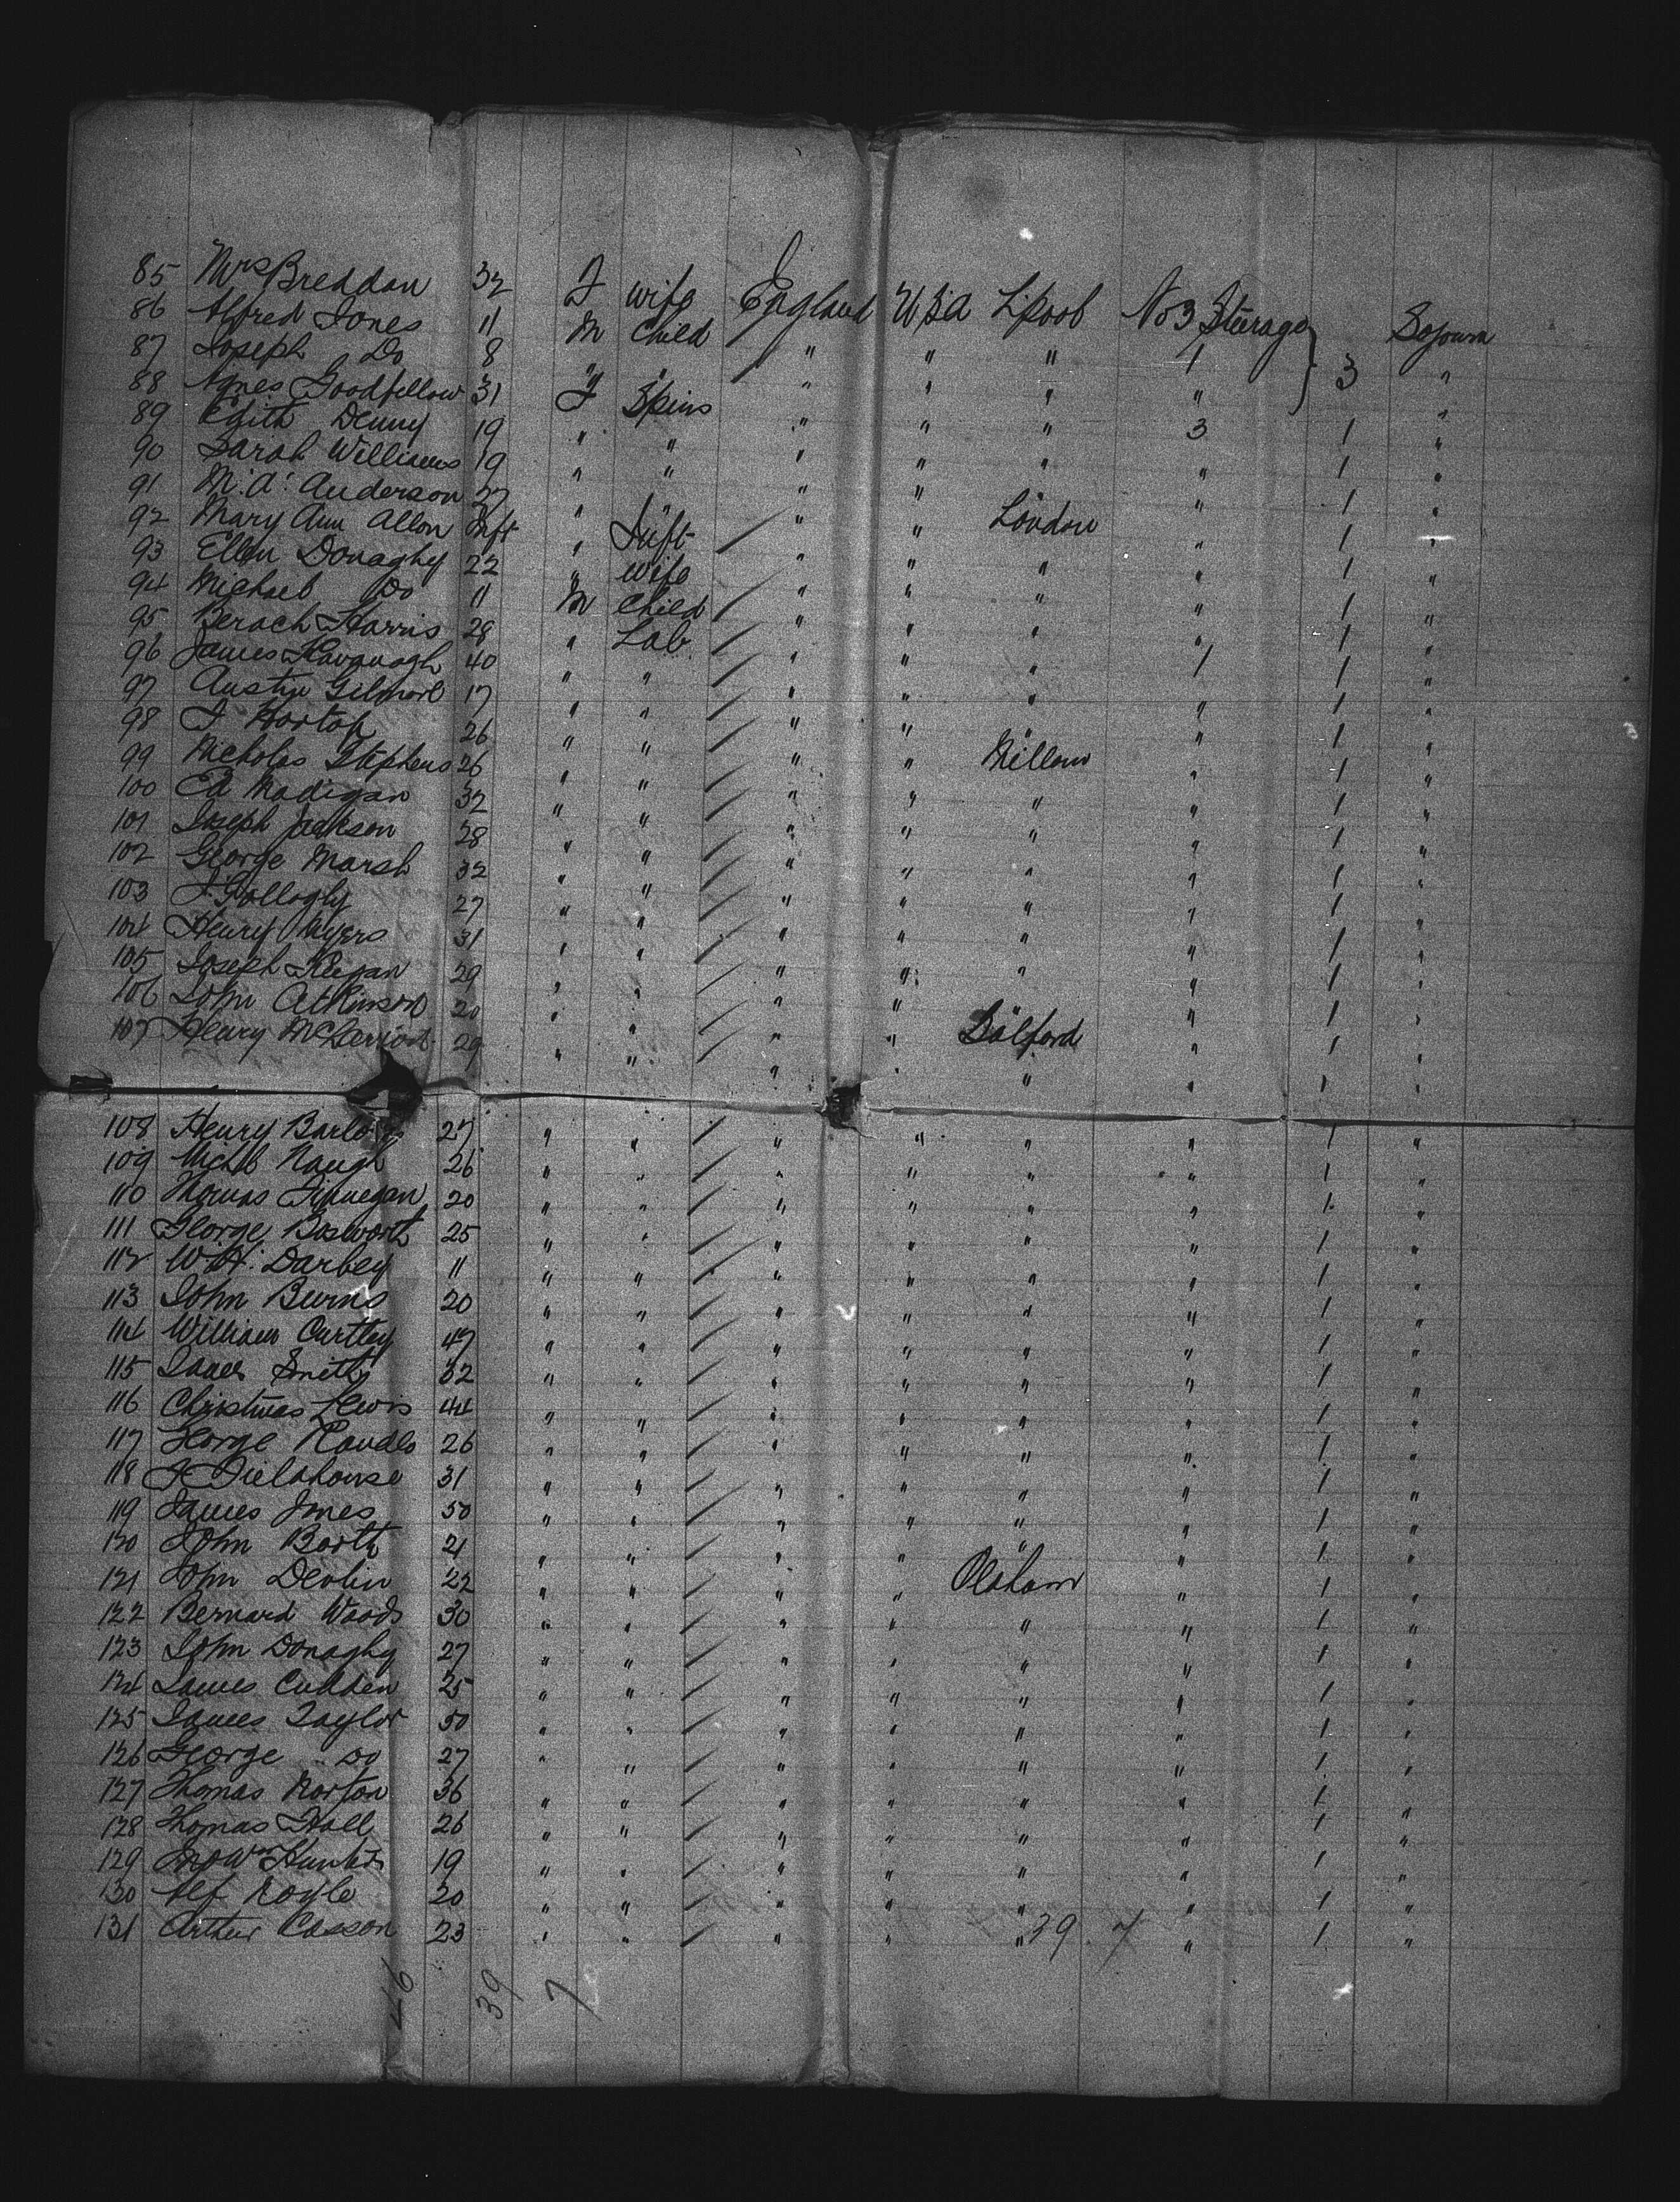 85 Mrs Breddan 32 F wife England USA Lpool No 3 Steerage Sojourn
86 Alfred Jones 11 M Child " " " 1 3 "
87 Joseph Do 8 " " " " " " "
88 Agnes Goodfellow 31 F Spins " " " 3 1 "
89 Edith Denny 19 " " " " " " 1 "
90 Sarah Williams 19 " " " " " " 1 "
91 M. A. Anderson 27 " " " " London " 1 "
92 Mary Ann Allon Inft " Inft " " " " 1 "
93 Ellen Donaghy 22 " Wife " " " " 1 "
94 Michael Do 11 M Child " " " " 1 "
95 Harris 28 " Lab " " " 1 1 "
96 James Kavanagh 40 " " " " " " 1 "
97 Austin Gilmore 17 " " " " " " 1 "
98 26 " " " " " 1 "
99 Nicholas Stephens 26 " " " " " " 1 "
100 Ed Madigan 32 " " " " " " 1 "
101 Joseph Jackson 28 " " " " " " 1 "
102 George Marsh 32 " " " " " " 1 "
103 J Gollogly 27 " " " " " " 1 "
104 Henry Myers 31 " " " " " " 1 "
105 Joseph Regan 29 " " " " " " 1 "
106 John Atkinson 20 " " " " Salford " 1 "
107 Henry 29 " " " " " " 1 "
108 Henry 27 " " " " " " 1 "
109 Michl 26 " " " " " " 1 "
110 Thomas Finnegan 20 " " " " " " 1 "
111 George Bosworth 25 " " " " " " 1 "
112 W. H. Darbey 11 " " " " " " 1 "
113 John Burns 20 " " " " " " 1 "
114 William 47 " " " " " " 1 "
115 James Smith 32 " " " " " " 1 "
116 Christmas Lewis 44 " " " " " " 1 "
117 George 26 " " " " " " 1 "
118 J Fieldhouse 31 " " " " " " 1 "
119 James Jones 50 " " " " " " 1 "
120 John Barth 21 " " " " " " 1 "
121 John Devlin 22 " " " " Oldham " 1 "
122 Bernard Woods 30 " " " " " " 1 "
123 John Donaghy 27 " " " " " " 1 "
124 James 25 " " " " " " 1 "
125 James Taylor 50 " " " " " " 1 "
126 George Do 27 " " " " " " 1 "
127 Thomas Norton 36 " " " " " " 1 "
128 Thomas Hall 26 " " " " " " 1 "
129 Jno Wm 19 " " " " " " 1 "
130 Alf Royle 20 " " " " " " 1 "
131 Arthur Casson 23 " " " " " " 1 "
39 7
46 39 7